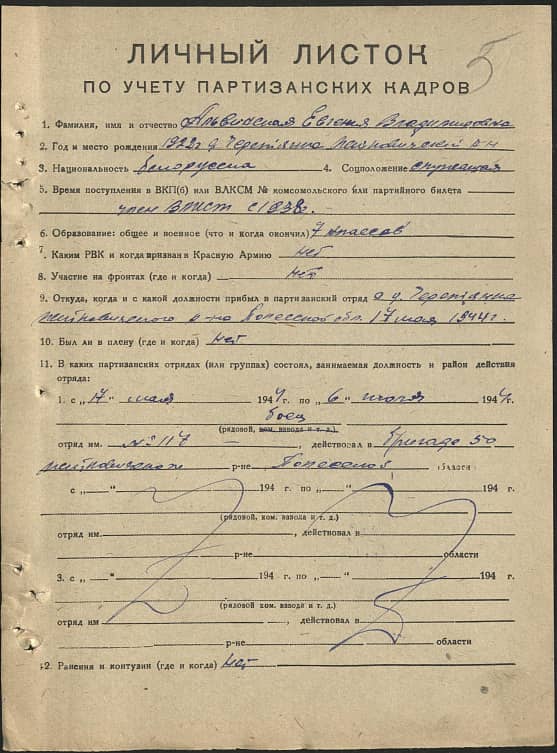 5
ЛИЧНЫЙ ЛИСТОК
ПО УЧЕТУ ПАРТИЗАНСКИХ КАДРОВ
1. Фамилия, имя и отчество Евгения Владимировна
2. Год и место рождения 1922 г. д.
3. Национальность белоруссka 4. Соцположение служащая
5. Время поступления в ВКП(б) или ВЛКСМ № комсомольского или партийного билета
член ВЛКСМ с 1938 г.
6. Образование: общее и военное (что и когда окончил) 7 классов
7. Каким РВК и когда призван в Красную Армию нет
8. Участие на фронтах (где и когда) нет
9. Откуда, когда и с какой должности прибыл в партизанский отряд с д.
Житковичского р-на Полесской обл. 17 мая 1944 г.
10. Был ли в плену (где и когда) нет
11. В каких партизанских отрядах (или группах) состоял, занимаемая должность и район действия
отряда:
1. с „17" мая 1944 г. по „6" июля 1944 г.
боец
(рядовой, ком. взвода и т. д.)
отряд им. № 117, действовал в бригаде 50
Житковичском р-не Полесской области
с „ " 194 г. по „ " 194 г.
(рядовой, ком. взвода и т. д.)
отряд им. , действовал в
р-не области
3. с „ " 194 г. по „ " 194 г.
(рядовой ком. взвода и т. д.)
отряд им , действовал в
р-не области
12. Ранения и контузии (где и когда) нет